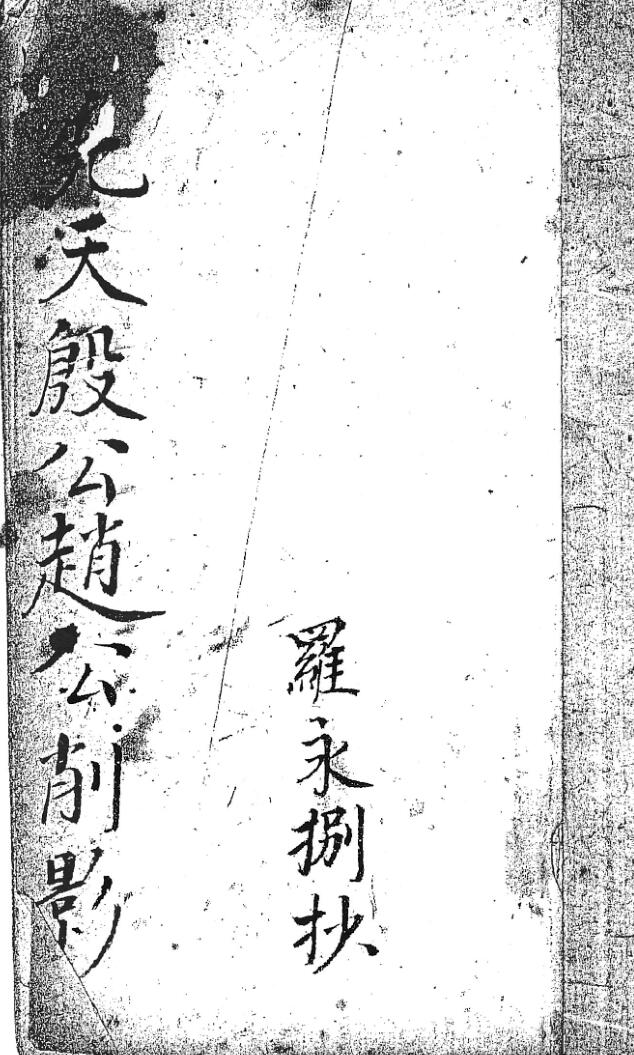 九天殷公趙公削影
羅永捌抄